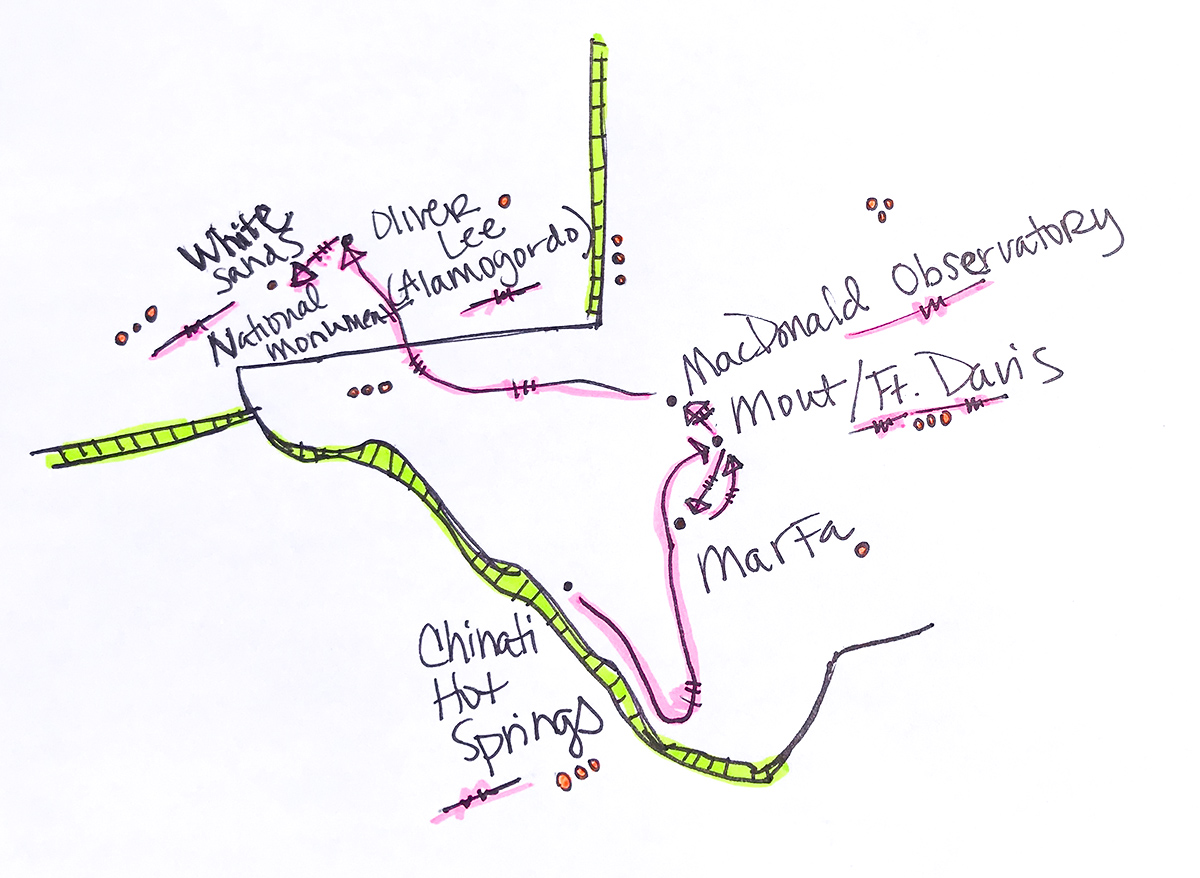 White
Sands
National
Monument
Oliver
Lee
(Alamogordo)
MacDonald Observatory
Mout/Ft. Davis
Marfa
Chinati
Hot
Springs